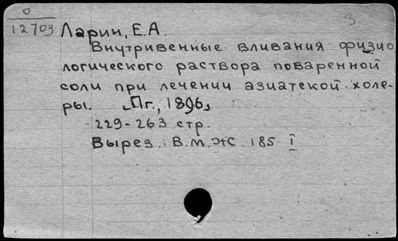 0
12703
3
Ларин, Е.А.
Внутривенные вливания физио
логического раствора поваренной
соли при лечении азиатской холе-
ры. Пг., 1896,
229-263 стр.
Вырез.: В.М.Ж. 185 I